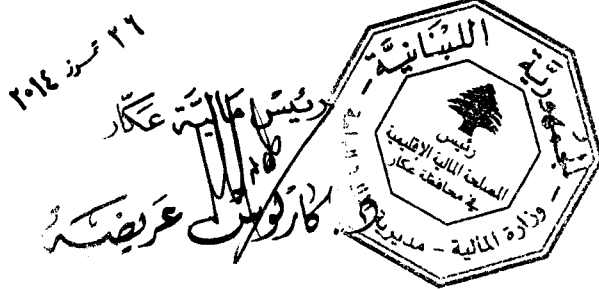 ٢٦ تموز ٢٠١٤
رئيس مالية عكّار
كارلوس عريضه
الجمهوريّة اللبنانيّة
وزارة المالية - مديرية
رئيس
المصلحة المالية الإقليمية
في محافظة عكار